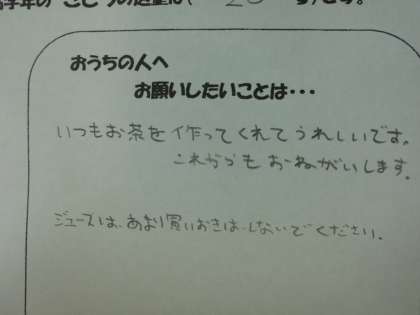 学年の"こころの
おうちの人へ
お願いしたいことは・・・
いつもお茶を作ってくれてうれしいです。
これからもおねがいします。
ジュースは、あまり買いおきはしないでください。